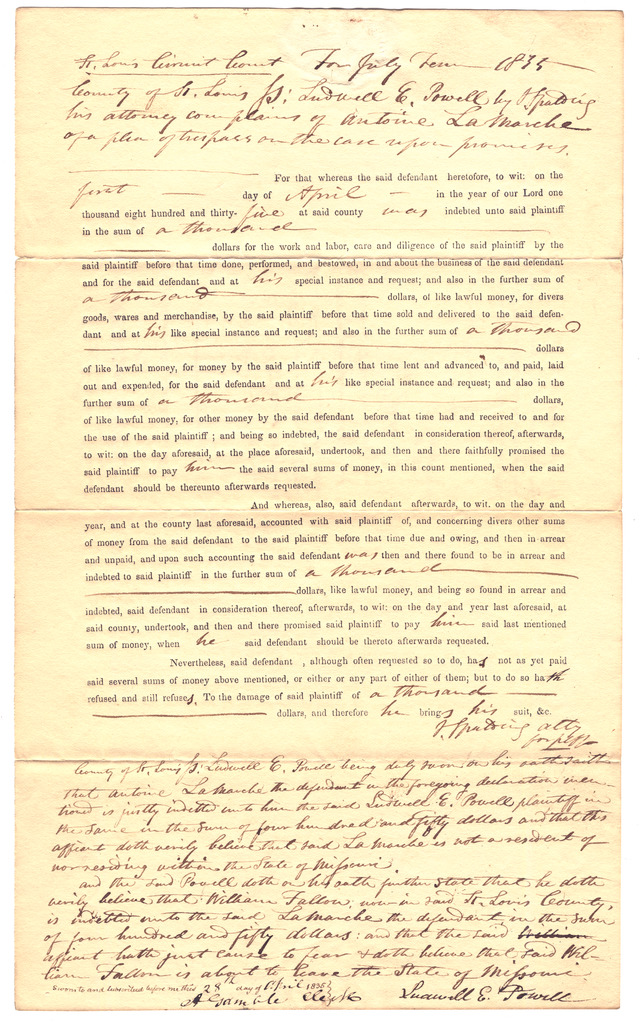 St. Louis Circuit Court For July Term 1835
County of St. Louis Ss: Ludwell E. Powell by J. Spalding
his attorney complains of Antoine LaMarche
of a plea of trespass on the case upon promises.
For that whereas the said defendant heretofore, to wit: on the
first day of April in the year of our Lord one
thousand eight hundred and thirty-five at said county was indebted unto said plaintiff
in the sum of a thousand
dollars for the work and labor, care and diligence of the said plaintiff by the
said plaintiff before that time done, performed, and bestowed, in and about the business of the said defendant
and for the said defendant and at his special instance and request; and also in the further sum of
a thousand dollars, of like lawful money, for divers
goods, wares and merchandise, by the said plaintiff before that time sold and delivered to the said defen-
dant and at his like special instance and request; and also in the further sum of a thousand
dollars
of like lawful money, for money by the said plaintiff before that time lent and advanced to, and paid, laid
out and expended, for the said defendant and at his like special instance and request; and also in the
further sum of a thousand dollars,
of like lawful money, for other money by the said defendant before that time had and received to and for
the use of the said plaintiff ; and being so indebted, the said defendant in consideration thereof, afterwards,
to wit: on the day aforesaid, at the place aforesaid, undertook, and then and there faithfully promised the
said plaintiff to pay him the said several sums of money, in this count mentioned, when the said
defendant should be thereunto afterwards requested.
And whereas, also, said defendant afterwards, to wit. on the day and
year, and at the county last aforesaid, accounted with said plaintiff of, and concerning divers other sums
of money from the said defendant to the said plaintiff before that time due and owing, and then in arrear
and unpaid, and upon such accounting the said defendant was then and there found to be in arrear and
indebted to said plaintiff in the further sum of a thousand
dollars, like lawful money, and being so found in arrear and
indebted, said defendant in consideration thereof, afterwards, to wit: on the day and year last aforesaid, at
said county, undertook, and then and there promised said plaintiff to pay him said last mentioned
sum of money, when he said defendant should be thereto afterwards requested.
Nevertheless, said defendant , although often requested so to do, has not as yet paid
said several sums of money above mentioned, or either or any part of either of them; but to do so hath
refused and still refuses. To the damage of said plaintiff of a thousand
dollars, and therefore he brings his suit, &c.
J. Spalding atty
for plff
County of St. Louis Ss: Ludwell E. Powell being duly sworn on his oath saith
that Antoine LaMarche the defendant in the foregoing declaration men-
tioned is justly indebted unto him the said Ludwell E. Powell plaintiff in
the same in the sum of four hundred and fifty dollars and that this
affiant doth verily believe that said LaMarche is not a resident of
nor residing within the State of Missouri.
and the said Powell doth on his oath further state that he doth
verily believe that William Fallon, now in said St. Louis County,
is indebted unto the said LaMarche the defendant, in the sum
of four hundred and fifty dollars: and that the said William
affiant hath just cause to fear & doth believe that said Wil-
liam Fallon is about to leave the State of Missouri.
Sworn to and subscribed before me this 28th day of April 1835
A Gamble Clerk Ludwell E. Powell